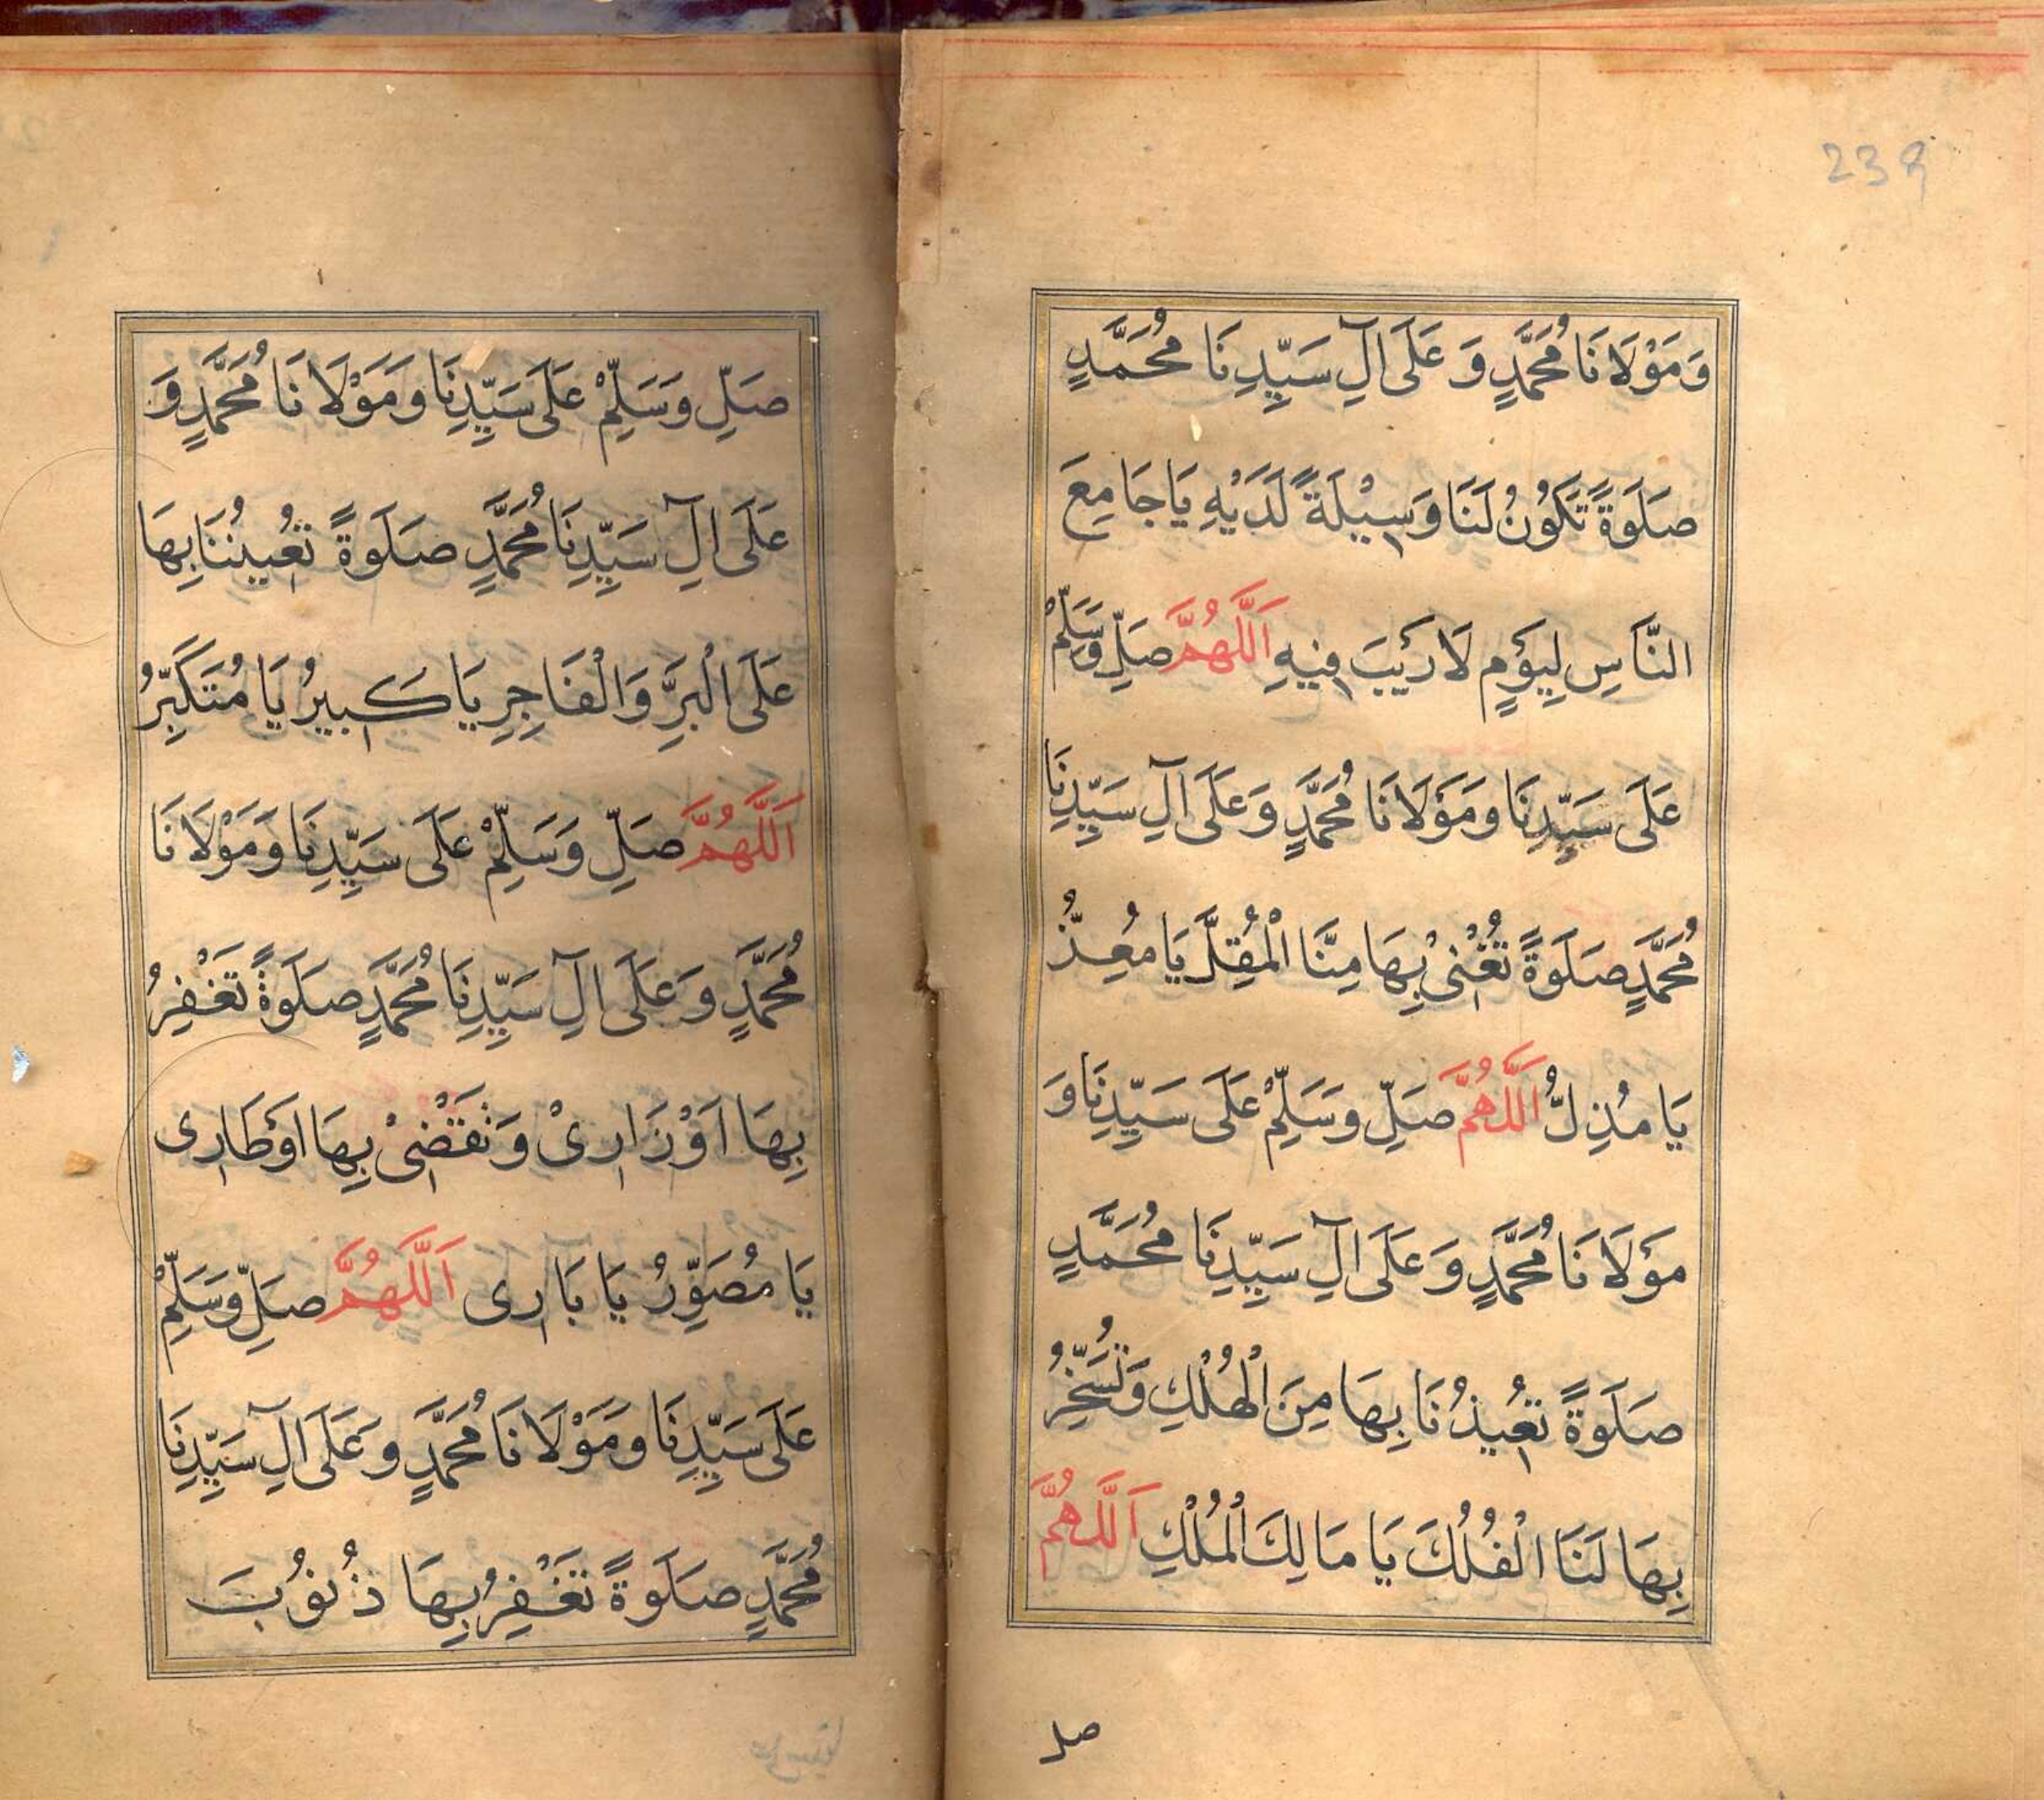 239
وَمَوْلَانَا مُحَمَّدٍ وَعَلَى آلِ سَيِّدِنَا مُحَمَّدٍ
صَلَوةً تَكُوْنُ لَنَا وَسِيْلَةً لَدَيْهِ يَا جَامِعَ
النَّاسِ لِيَوْمٍ لَا رَيْبَ فِيْهِ اَللَّهُمَّ صَلِّ وَسَلِّمْ
عَلَى سَيِّدِنَا وَمَوْلَانَا مُحَمَّدٍ وَعَلَى آلِ سَيِّدِنَا
مُحَمَّدٍ صَلَوةً تُغْنِيْ بِهَا مِنَّا الْمُقِلَّ يَا مُعِزُّ
يَا مُذِلُّ اَللَّهُمَّ صَلِّ وَسَلِّمْ عَلَى سَيِّدِنَا وَ
مَوْلَانَا مُحَمَّدٍ وَعَلَى آلِ سَيِّدِنَا مُحَمَّدٍ
صَلَوةً تُعِيْذُنَا بِهَا مِنَ الْهُلْكِ وَتُسَخِّرُ
بِهَا لَنَا الْفُلْكَ يَا مَالِكَ الْمُلْكِ اَللَّهُمَّ
صل
صَلِّ وَسَلِّمْ عَلَى سَيِّدِنَا وَمَوْلَانَا مُحَمَّدٍ وَ
عَلَى آلِ سَيِّدِنَا مُحَمَّدٍ صَلَوةً تُعِيْنُنَا بِهَا
عَلَى الْبَرِّ وَالْفَاجِرِ يَا كَبِيْرُ يَا مُتَكَبِّرُ
اَللَّهُمَّ صَلِّ وَسَلِّمْ عَلَى سَيِّدِنَا وَمَوْلَانَا
مُحَمَّدٍ وَعَلَى آلِ سَيِّدِنَا مُحَمَّدٍ صَلَوةً تَغْفِرُ
بِهَا اَوْزَارِيْ وَتَقْضِيْ بِهَا اَوْطَارِى
يَا مُصَوِّرُ يَا بَارِى اَللَّهُمَّ صَلِّ وَسَلِّمْ
عَلَى سَيِّدِنَا وَمَوْلَانَا مُحَمَّدٍ وَعَلَى آلِ سَيِّدِنَا
مُحَمَّدٍ صَلَوةً تَغْفِرُ بِهَا ذُنُوْبَ